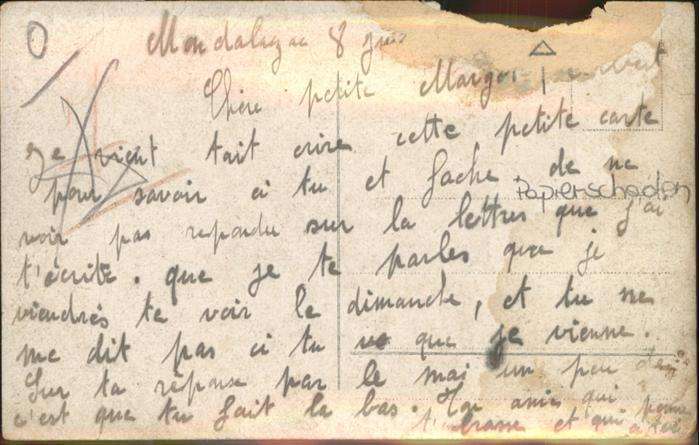 Mondalazac 8
Chère petite Margot
Je vient tait crire cette petite carte
pour savoir ci tu et fache. de ne
Papierschaden
voir pas repondu sur la lettres que j'ai
t'écrite. que je te parles que je
viendrés te voir le dimanche, et tu me
me dit pas ci tu que je vienne.
Sur ta réponse par le mai un peu
c'est que tu fait la bas. Ton amie qui
t'brasse et qui pense
a toi